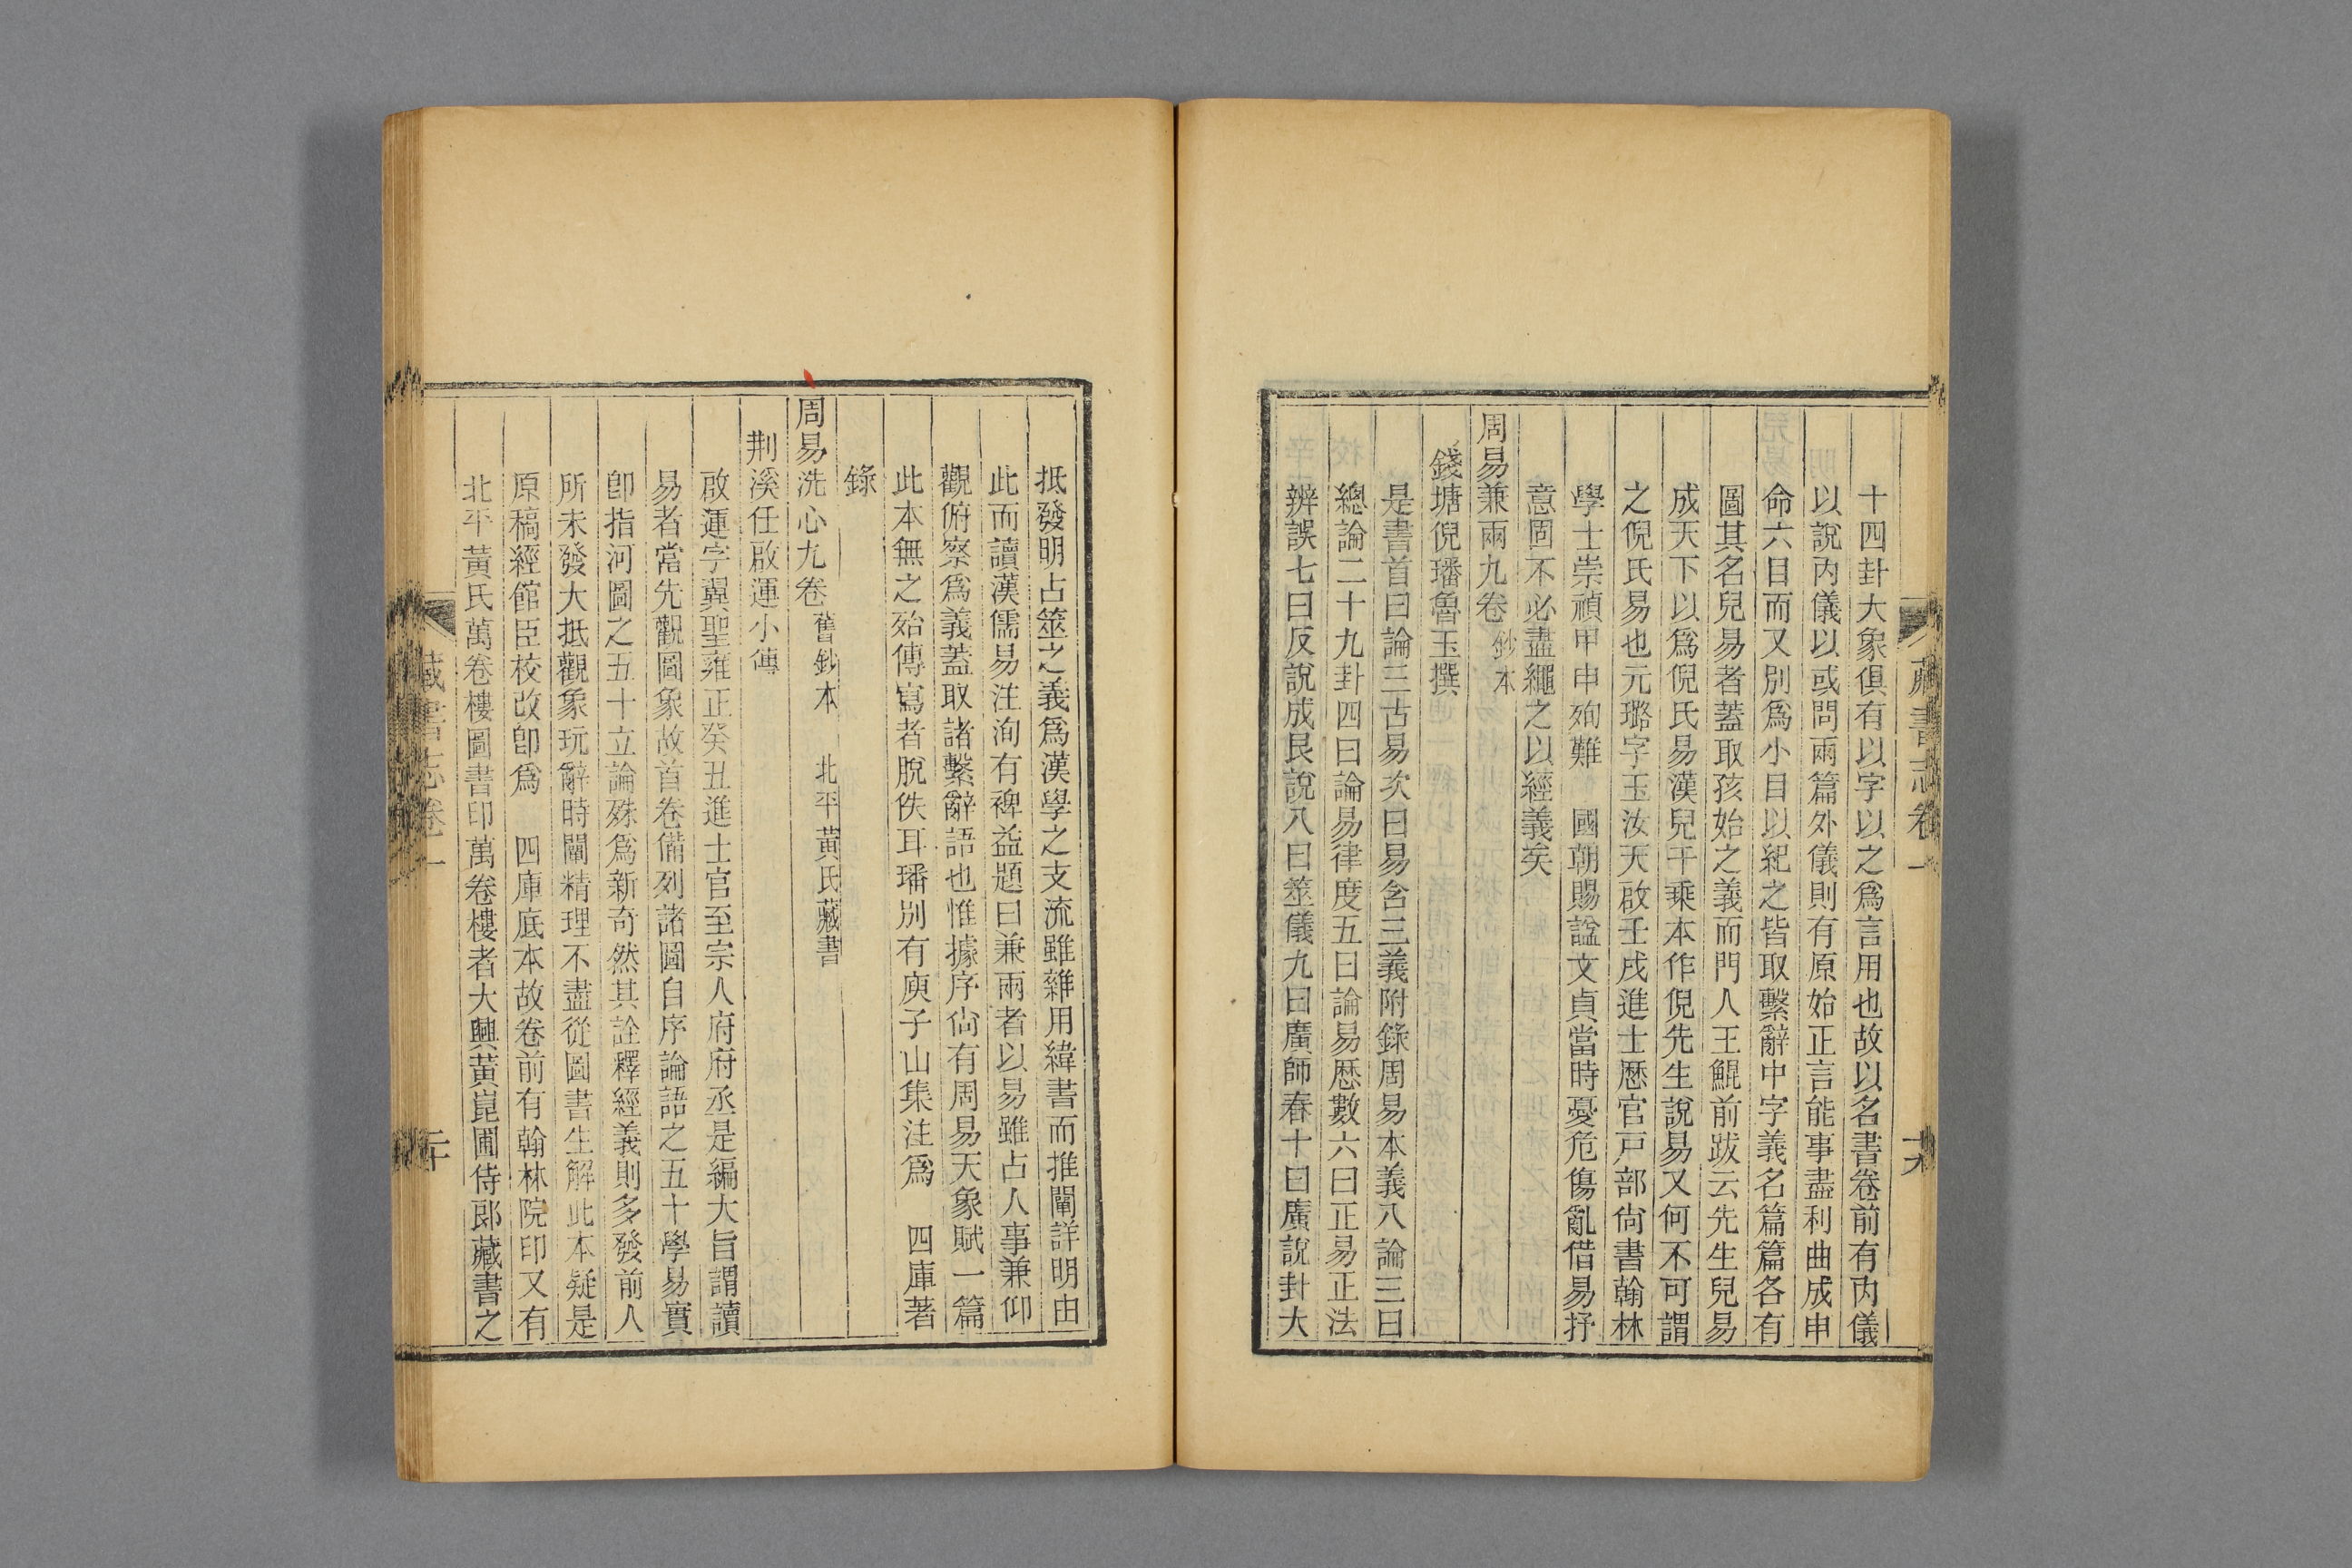 藏書志卷一
十四卦大象俱有以字以之爲言用也故以名書卷前有內儀
以說內儀以或問兩篇外儀則有原始正言能事盡利曲成申
命六目而又別爲小目以紀之皆取繫辭中字義名篇篇各有
圖其名兒易者蓋取孩始之義而門人王鯤前跋云先生兒易
成天下以爲倪氏易漢兒干乘本作倪先生說易又何不可謂
之倪氏易也元璐字玉汝天啟壬戌進士歷官戸部尙書翰林
學士崇禎甲申殉難　國朝賜諡文貞當時憂危傷亂借易抒
意固不必盡繩之以經義矣
周易兼兩九卷 鈔本
錢塘倪璠魯玉撰
是書首曰論三古易次曰易含三義附錄周易本義八論三曰
總論二十九卦四曰論易律度五曰論易歷數六曰正易正法
辨誤七曰反說成艮說八曰筮儀九曰廣師春十曰廣說卦大
抵發明占筮之義爲漢學之支流雖雜用緯書而推闡詳明由
此而讀漢儒易注洵有裨益題曰兼兩者以易雖占人事兼仰
觀俯察爲義蓋取諸繫辭語也惟據序尙有周易天象賦一篇
此本無之殆傳寫者脫佚耳璠別有庾子山集注爲　四庫著
錄
周易洗心九卷 舊鈔本　北平黃氏藏書
荆溪任啟運小傳
啟運字翼聖雍正癸丑進士官至宗人府府丞是編大旨謂讀
易者當先觀圖象故首卷備列諸圖自序論語之五十學易實
卽指河圖之五十立論殊爲新奇然其詮釋經義則多發前人
所未發大抵觀象玩辭時闡精理不盡從圖書生解此本疑是
原稿經館臣校改卽爲　四庫底本故卷前有翰林院印又有
北平黃氏萬卷樓圖書印萬卷樓者大興黃崑圃侍郎藏書之
藏書志卷一
二十